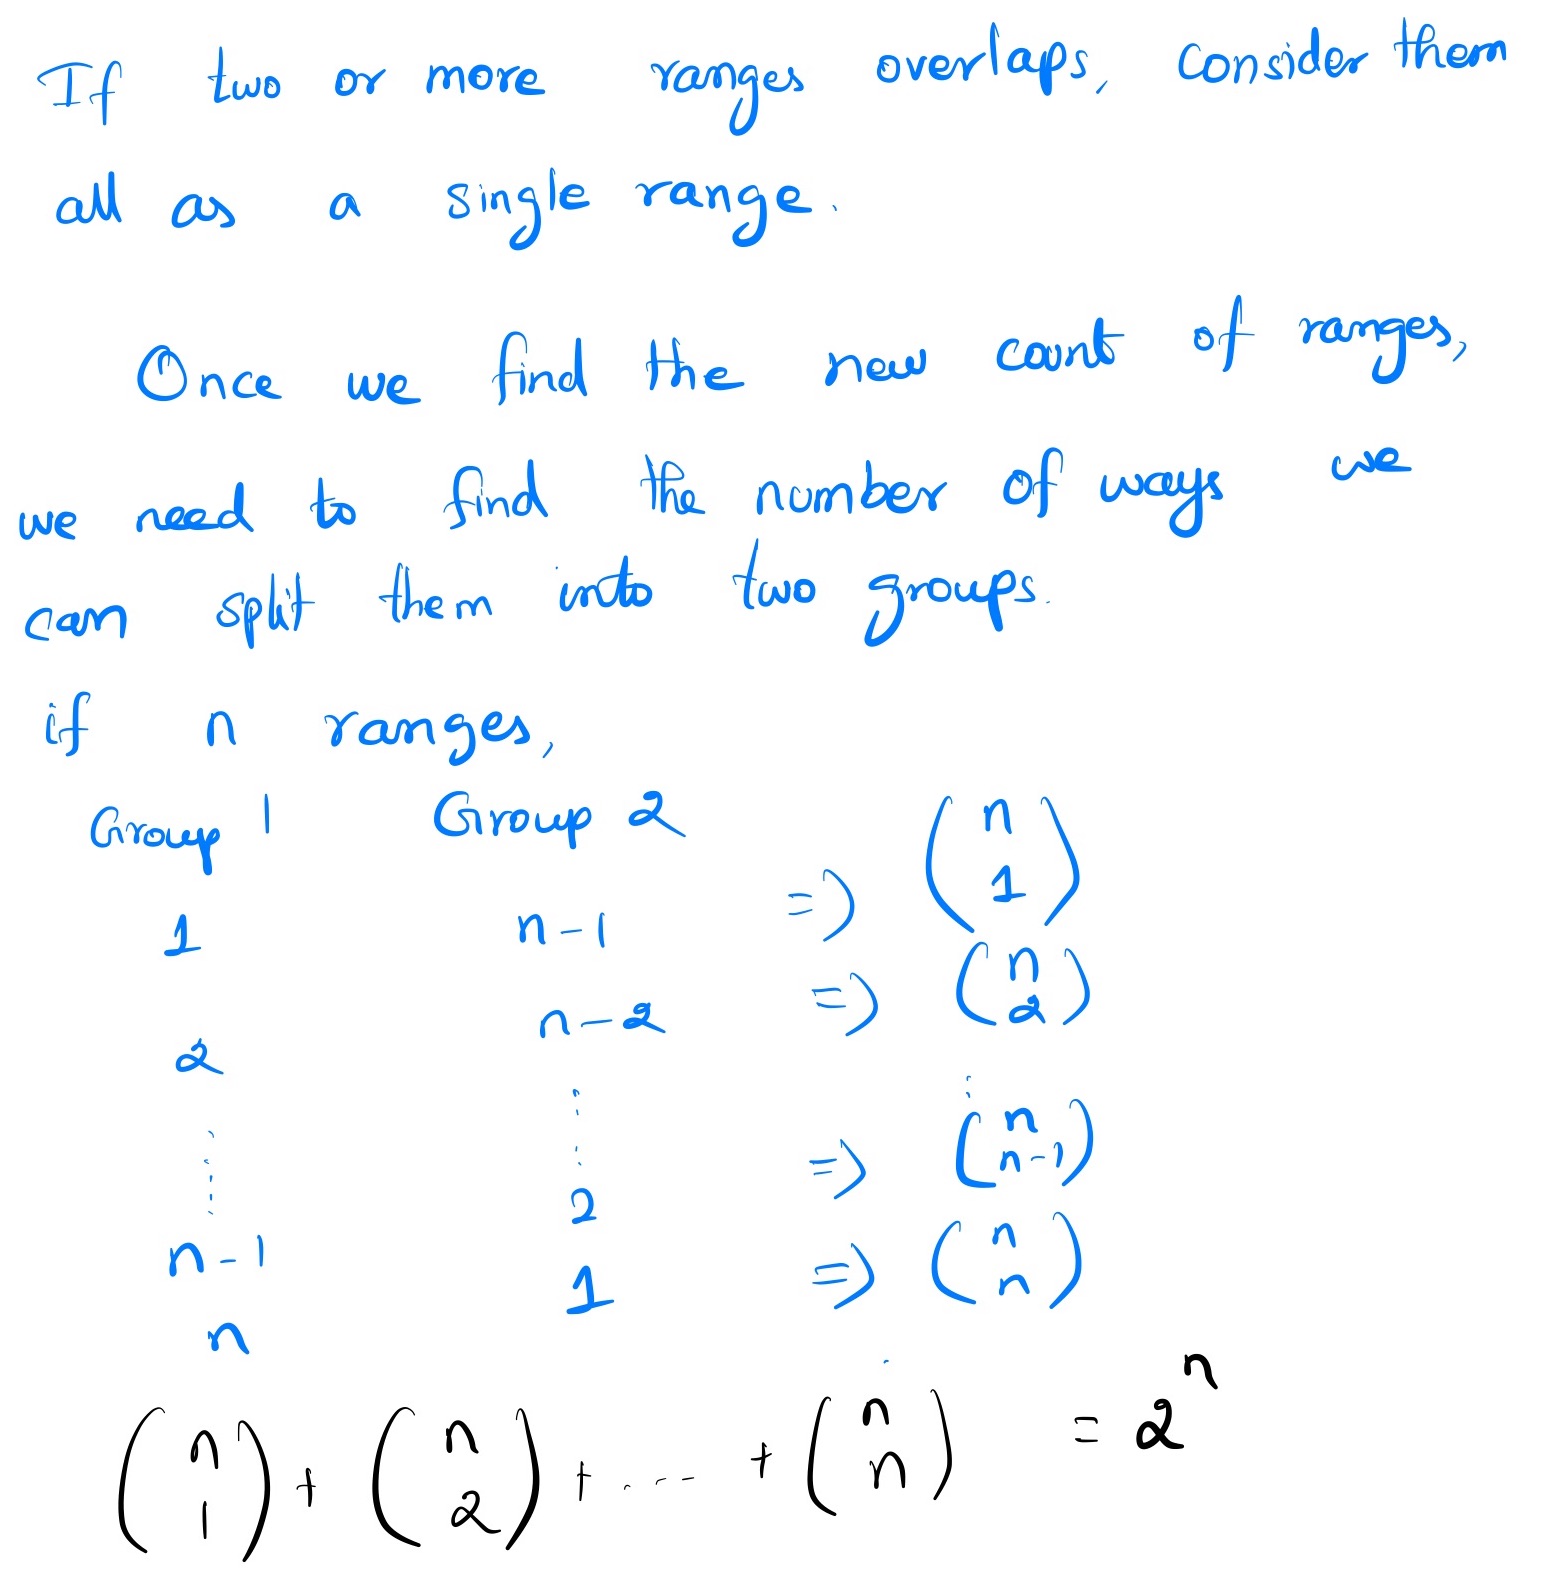 If two or more ranges overlaps, consider them
all as a single range.
Once we find the new count of ranges,
we need to find the number of ways we
can split them into two groups.
if n ranges,
Group 1 Group 2
1 n-1 => (n 1)
2 n-2 => (n 2)
⋮ ⋮ ⋮
2 => (n n-1)
n-1 1 => (n n)
n
(n 1) + (n 2) + .... + (n n) = 2^n